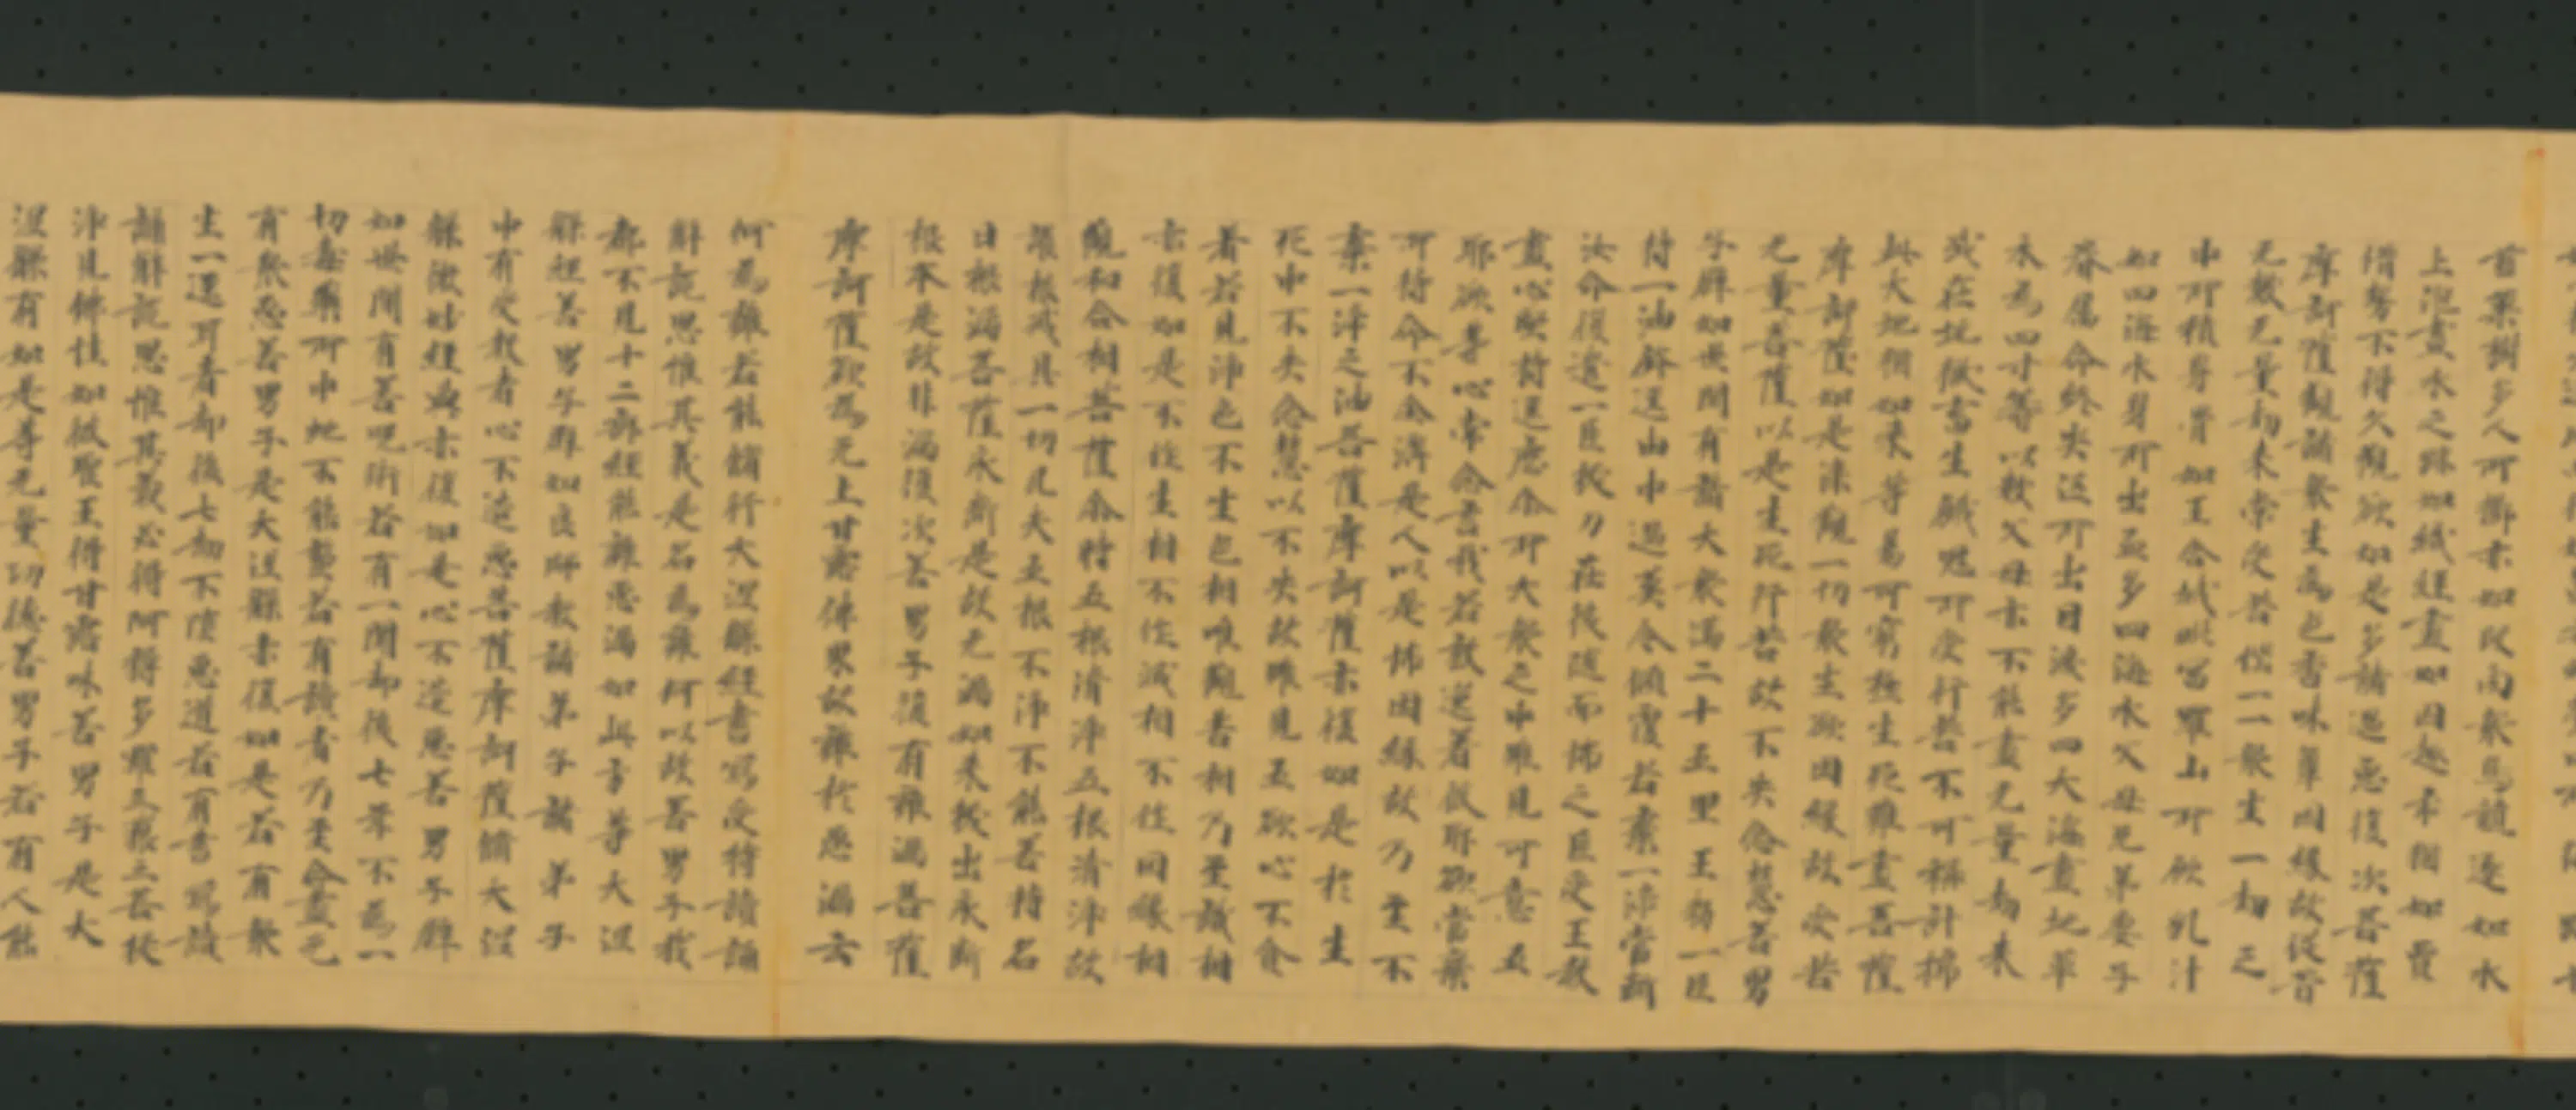 首菓樹多人所擲亦如㲉肉衆鳥競逐如水
上泡畫水之跡如織経盡如囚趣市猶如㲉
借勢不得久觀欲如是多諸過惡復次菩薩
摩訶薩觀諸衆生為色香味觸因緣故従昔
无數无量劫来常受苦惱一一衆生一劫之
中所積身骨如王舎城毗富羅山所飲乳汁
如四海水身所出血多四海水父母兄弟妻子
眷属命終哭泣所出目淚多四大海盡地草
木為四寸籌以數父母亦不能盡无量劫来
或在地獄畜生餓鬼所受行苦不可稱計揣
此大地猶如棗等易可窮極生死難盡菩薩
摩訶薩如是深觀一切衆生欲因緣故受苦
无量菩薩以是生死行苦故不失念慧善男
子辟如世間有諸大衆滿二十五里王勑一臣
持一油鉢逕由中過莫令傾覆若棄一渧當斷
汝命復遣一臣拔刀在後随而怖之臣受王教
盡心堅持逕歷尒所大衆之中雖見可意五
耶欲等心常念言我若放逸著彼耶欲當棄
所持命不全濟是人以是怖因緣故乃至不
棄一渧之油菩薩摩訶薩亦復如是於生
死中不失念慧以不失故雖見五欲心不貪
著若見浄色不生色相唯觀苦相乃至識相
亦復如是不作生相不作滅相不作因緣相
觀和合相菩薩尒時五根清浄五根清浄故
護根戒具一切凡夫五根不浄不能善持名
曰根漏菩薩永斷是故无漏如来拔出永斷
根本是故非漏復次善男子復有離漏菩薩
摩訶薩欲為无上甘露佛果故離於惡漏云
何為離若能脩行大涅縣経書寫受持讀誦
解說思惟其義是名為離何以故善男子我
都不見十二部経能離惡漏如此方等大涅
縣経善男子辟如良師教諸弟子諸弟子
中有受教者心不造惡菩薩摩訶薩脩大涅
縣微妙経典亦復如是心不造惡善男子辟
如世間有善呪術若有一聞却後七年不為一
切毒藥所中虵不能螫若有讀者乃至命盡无
有衆惡善男子是大涅縣亦復如是若有衆
生一逕耳者却後七劫不墮惡道若有書寫讀
誦解說思惟其義必得阿耨多羅三藐三菩提
浄見佛性如彼聖王得甘露味善男子是大
涅縣有如是等无量功德善男子若有人能